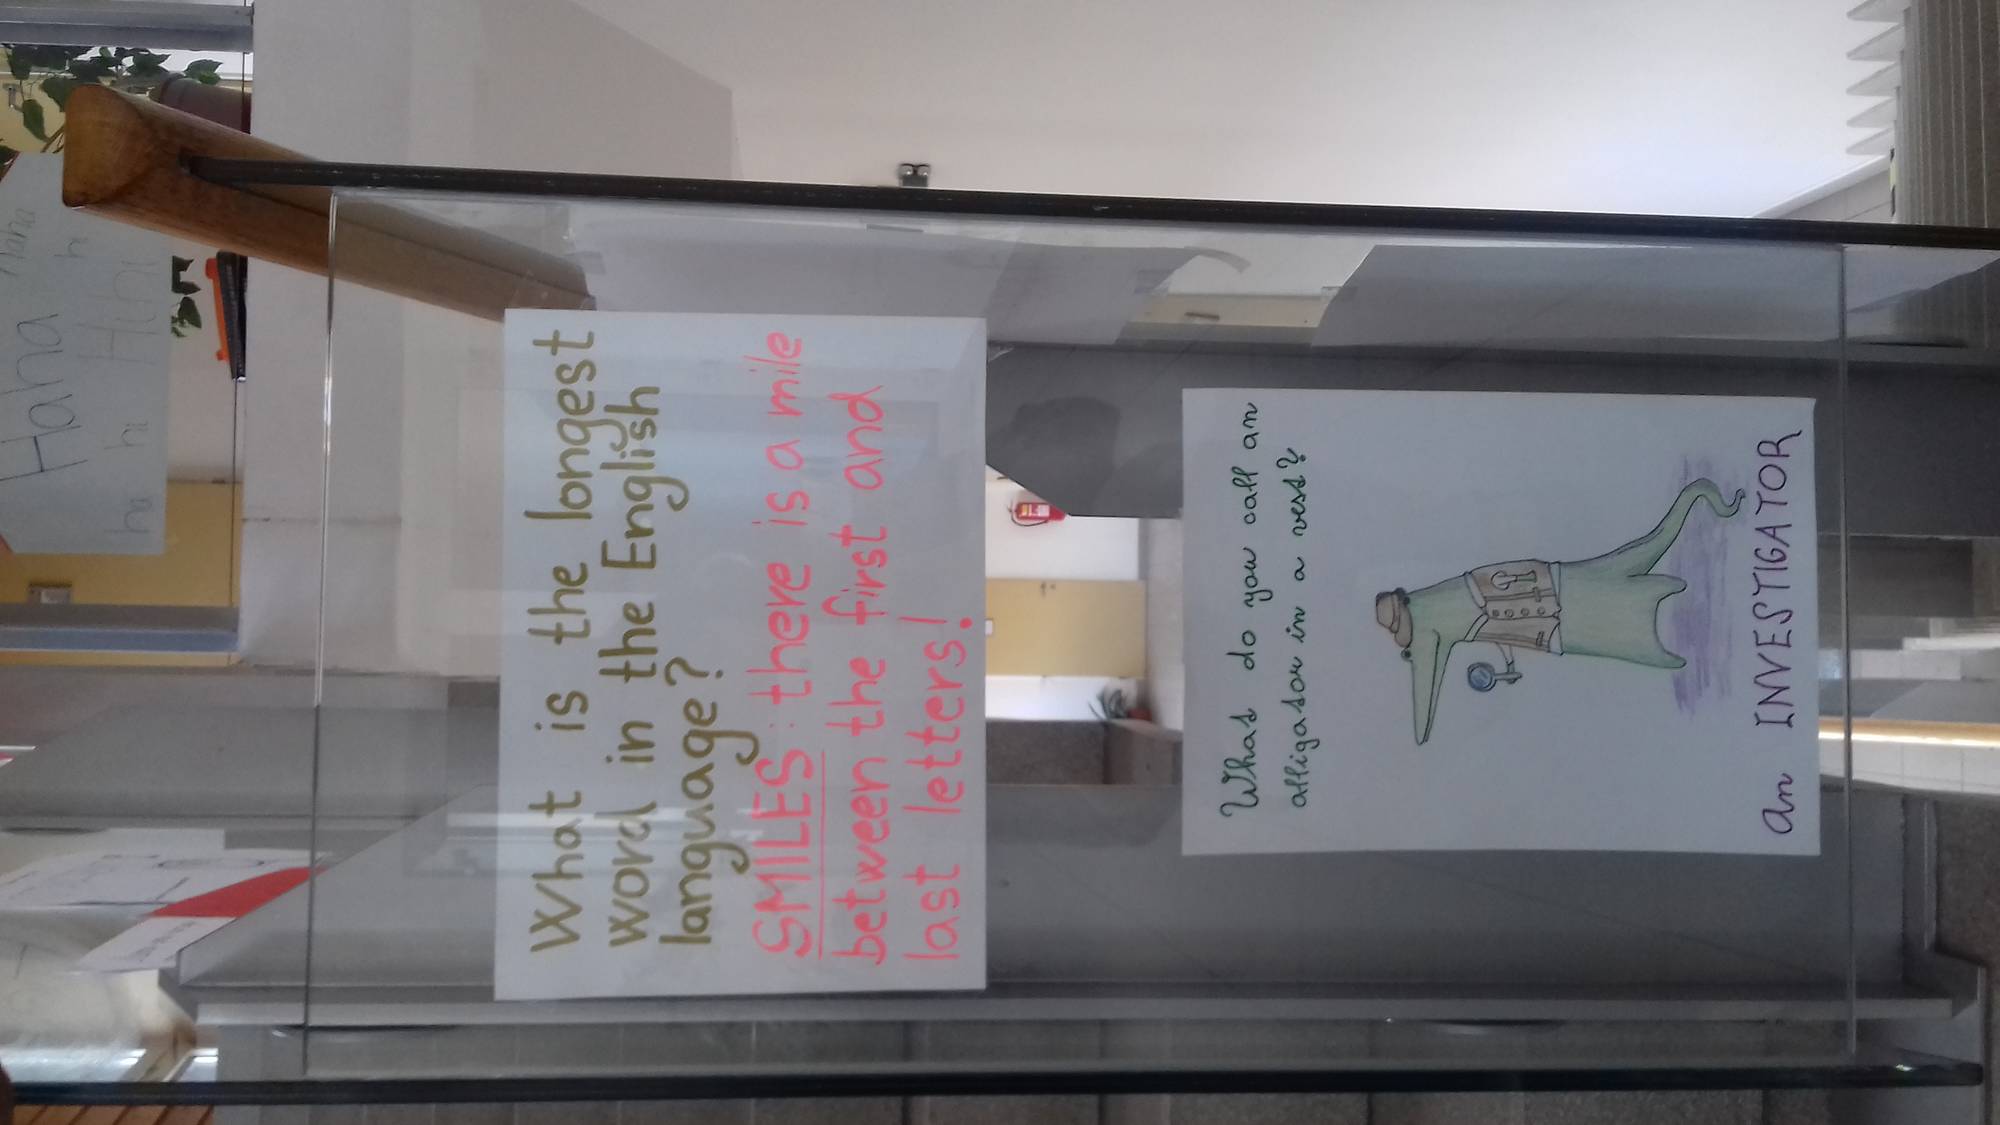 What is the longest
word in the English
language?
SMILES: there is a mile
between the first and
last letters!
What do you call an
alligator in a vest?
an INVESTIGATOR
Haha
haha
hi
Hihi
hi
ha